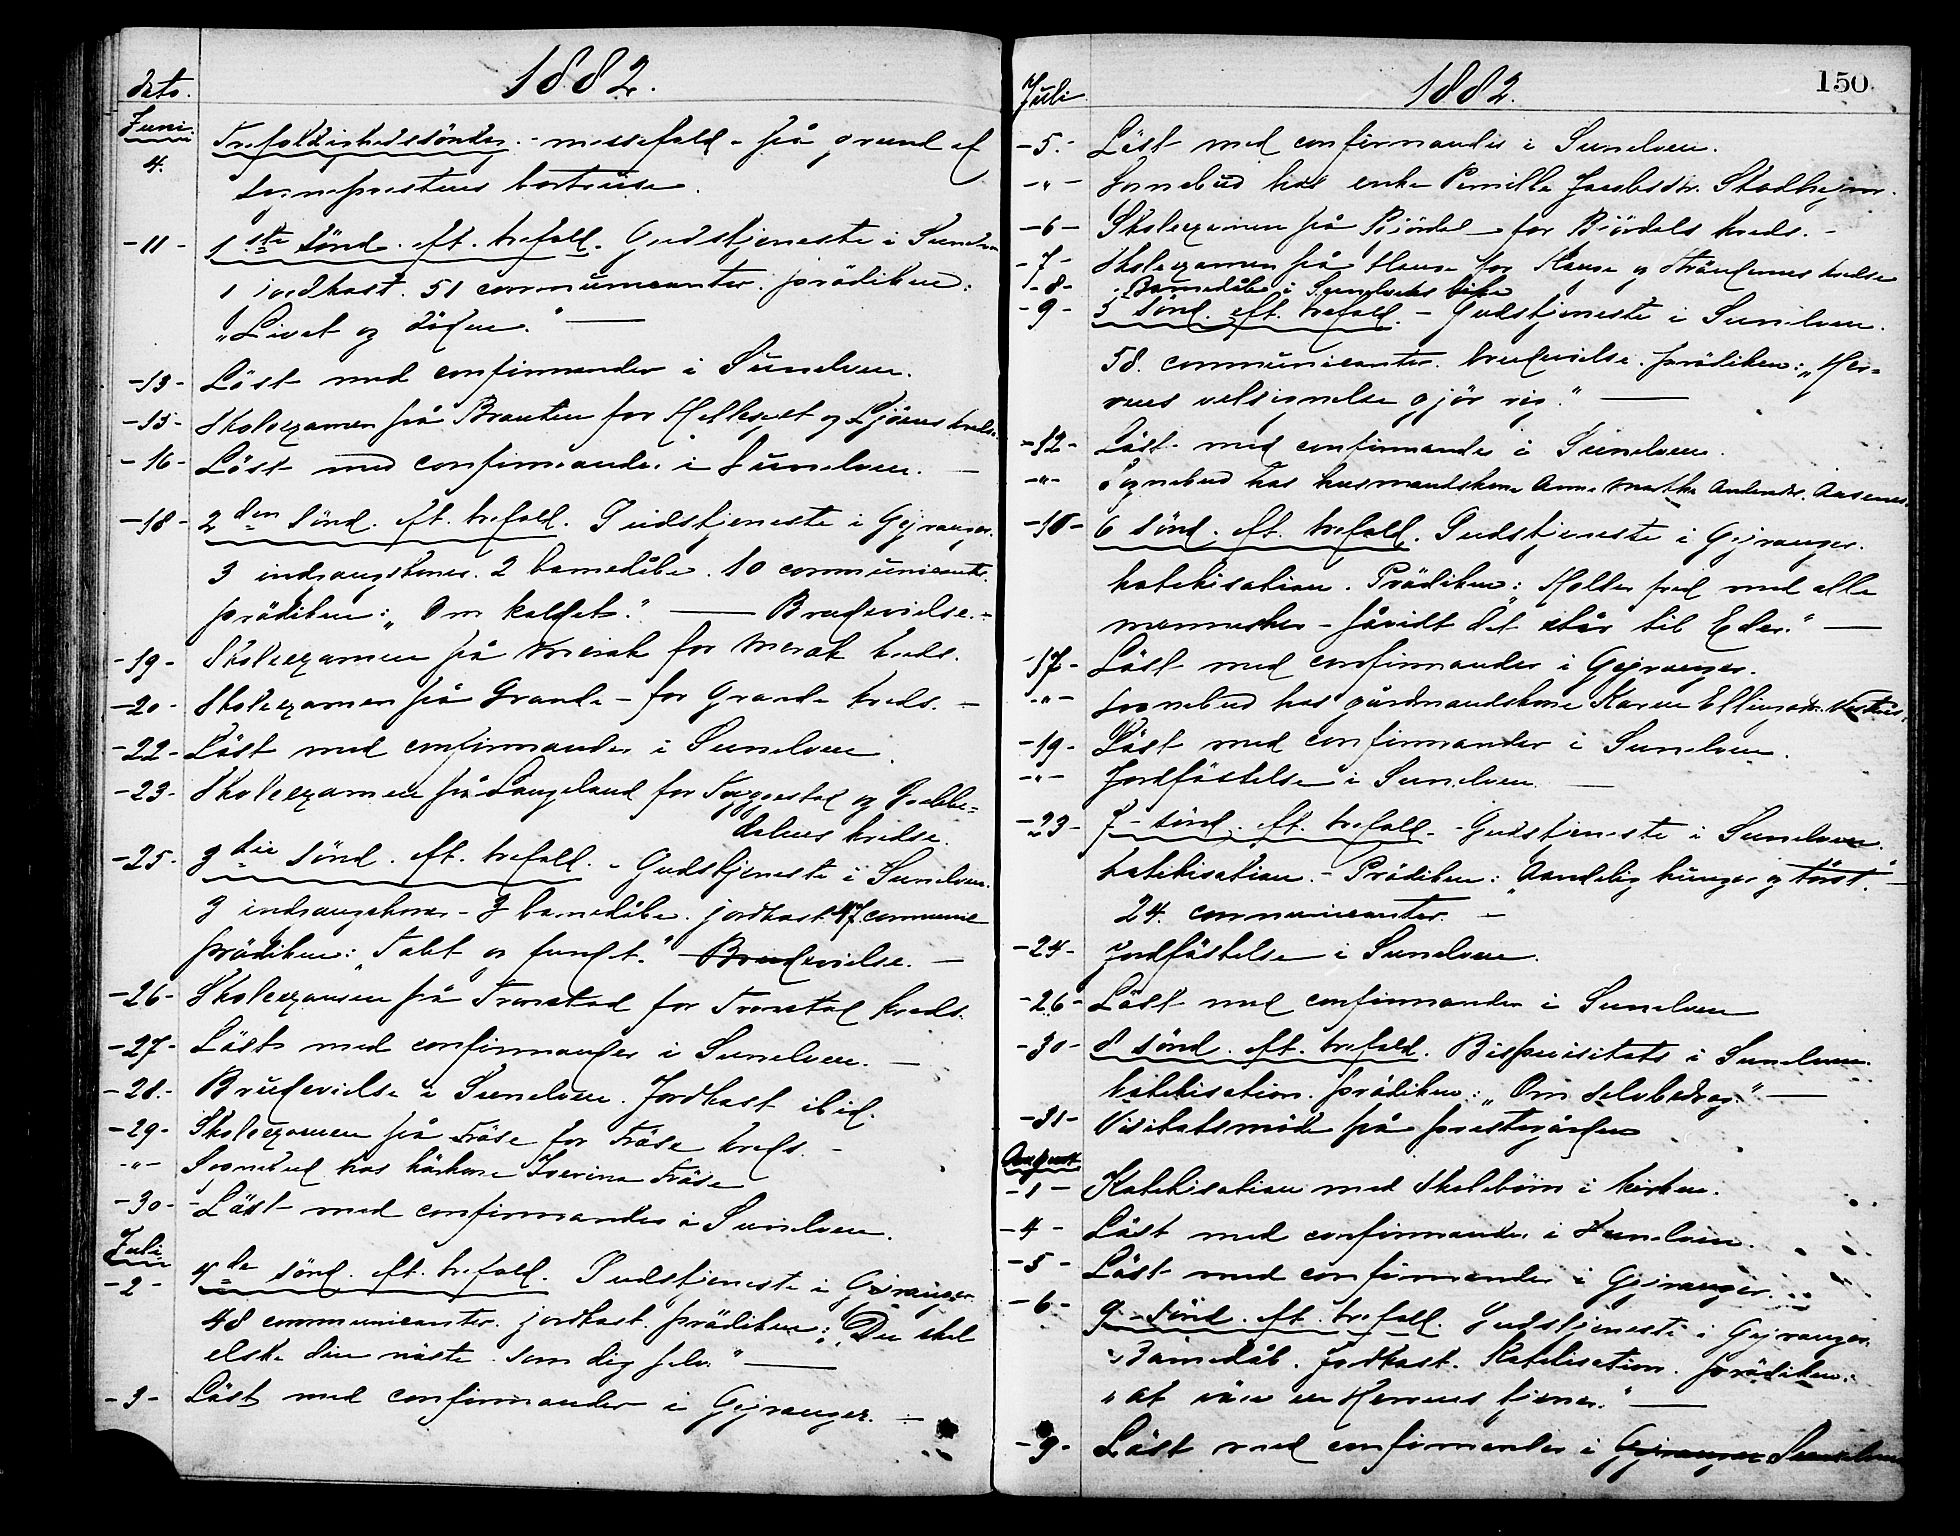 dato. 1882.
Juni
4. Trefoldighedssöndag. - messefald - på grund af
sogneprestens bortreise.
- 11 - 1ste sönd. eft. trefold. Gudstjeneste i Sunelven
1 jordkast. 51 communicanter. prädiken:
"Livet og döden." —
- 13 - Läst med confirmander i Sunelven.
- 15 - Skoleexamen på Brauten for Hellesylt og Ljöens kredse
- 16 - Läst med confirmander i Sunelven. —
- 18 - 2den sönd. eft. trefold. Gudstjeneste i Gejranger.
3 indgangskoner. 2 barnedåbe. 10 communicanter.
prädiken: "Om kaldet." — Brudevielse. -
- 19 - Skoleexamen på Merak for Merak kreds.
- 20 - Skoleexamen på Grande - for Grande kreds. —
- 22 - Läst med confirmander i Sunelven.
- 23 - Skoleexamen på Langeland for Tryggestad og
dalens kredse.
- 25 - 3die sönd. eft. trefold. - Gudstjeneste i Sunelven.
3 indgangskoner - 3 barnedåbe. jordkast. 47 communic
prädiken: "Tabt og fundet." Brudevielse. —
- 26 - Skoleexamen på Tronstad for Tronstad kreds.
- 27 - Läst med confirmander i Sunelven. —
- 28 - Brudevielse i Sunelven. Jordkast ibid.
- 29 - Skoleexamen på Fräse for Fräse kreds. -
- " - Sognebud hos kårkone Iverine Fräse
- 30 - Läst med confirmander i Sunelven.
Juli
- 2 - 4de sönd. eft. trefold. Gudstjeneste i Gejranger
48 communicanter. jordkast. prädiken: "Du skal
elske din näste som dig selv." —
- 3 - Läst med confirmander i Gejranger. —
Juli 1882. 150
- 5 - Läst med confirmander i Sunelven.
- " - Sognebud hos enke Pernille Jacobsdtr. Stadheim.
- 6 - Skoleexamen på Björdal - for Björdals kreds. -
- 7 - Skoleexamen på Hauge for Hauge og Strandens kredse
- 8 - Barnedåb i Sunelvens kirke
- 9 - 5 sönd. eft. trefold. - Gudstjeneste i Sunelven.
58. communicanter. brudevielse. prädiken: "Her=
rens velsignelse gjör rig." —
- 12 - Läst med confirmander i Sunelven.
- " - Sognebud hos husmandskone Anne Martha Andersdtr. Aasenes.
- 16 - 6 sönd. eft. trefold. Gudstjeneste i Gejranger.
katekisation. Prädiken: "Holder fred med alle
mennesker - såvidt det står til Eder." —
- 17 - Läst med confirmander i Gejranger.
- " - Sognebud hos gårdmandskone Karen Ellingsdtr.
- 19 - Läst med confirmander i Sunelven.
- " - Jordfästelse i Sunelven —
- 23 - 7 - sönd. eft. trefold. - Gudstjeneste i Sunelven.
katekisation. - Prädiken: "Aandelig hunger og törst." -
24. communicanter. -
- 24 - Jordfästelse i Sunelven.
- 26 - Läst med confirmander i Sunelven
- 30 - 8 sönd. eft. trefold. Bispevisitats i Sunelven.
katekisation. prädiken: "Om selvbedrag." —
- 31 - Visitatsmöde på prestegården
August
- 1 - Katekisation med skolebörn i kirken.
- 4 - Läst med confirmander i Sunelven.
- 5 - Läst med confirmander i Gejranger.
- 6 - 9 - sönd. eft. trefold. Gudstjeneste i Gejranger.
Barnedåb. Jordkast. Katekisation. prädiken:
"at väre en Herrens tjener." —
- 9 - Läst med confirmander i Gejranger Sunelven